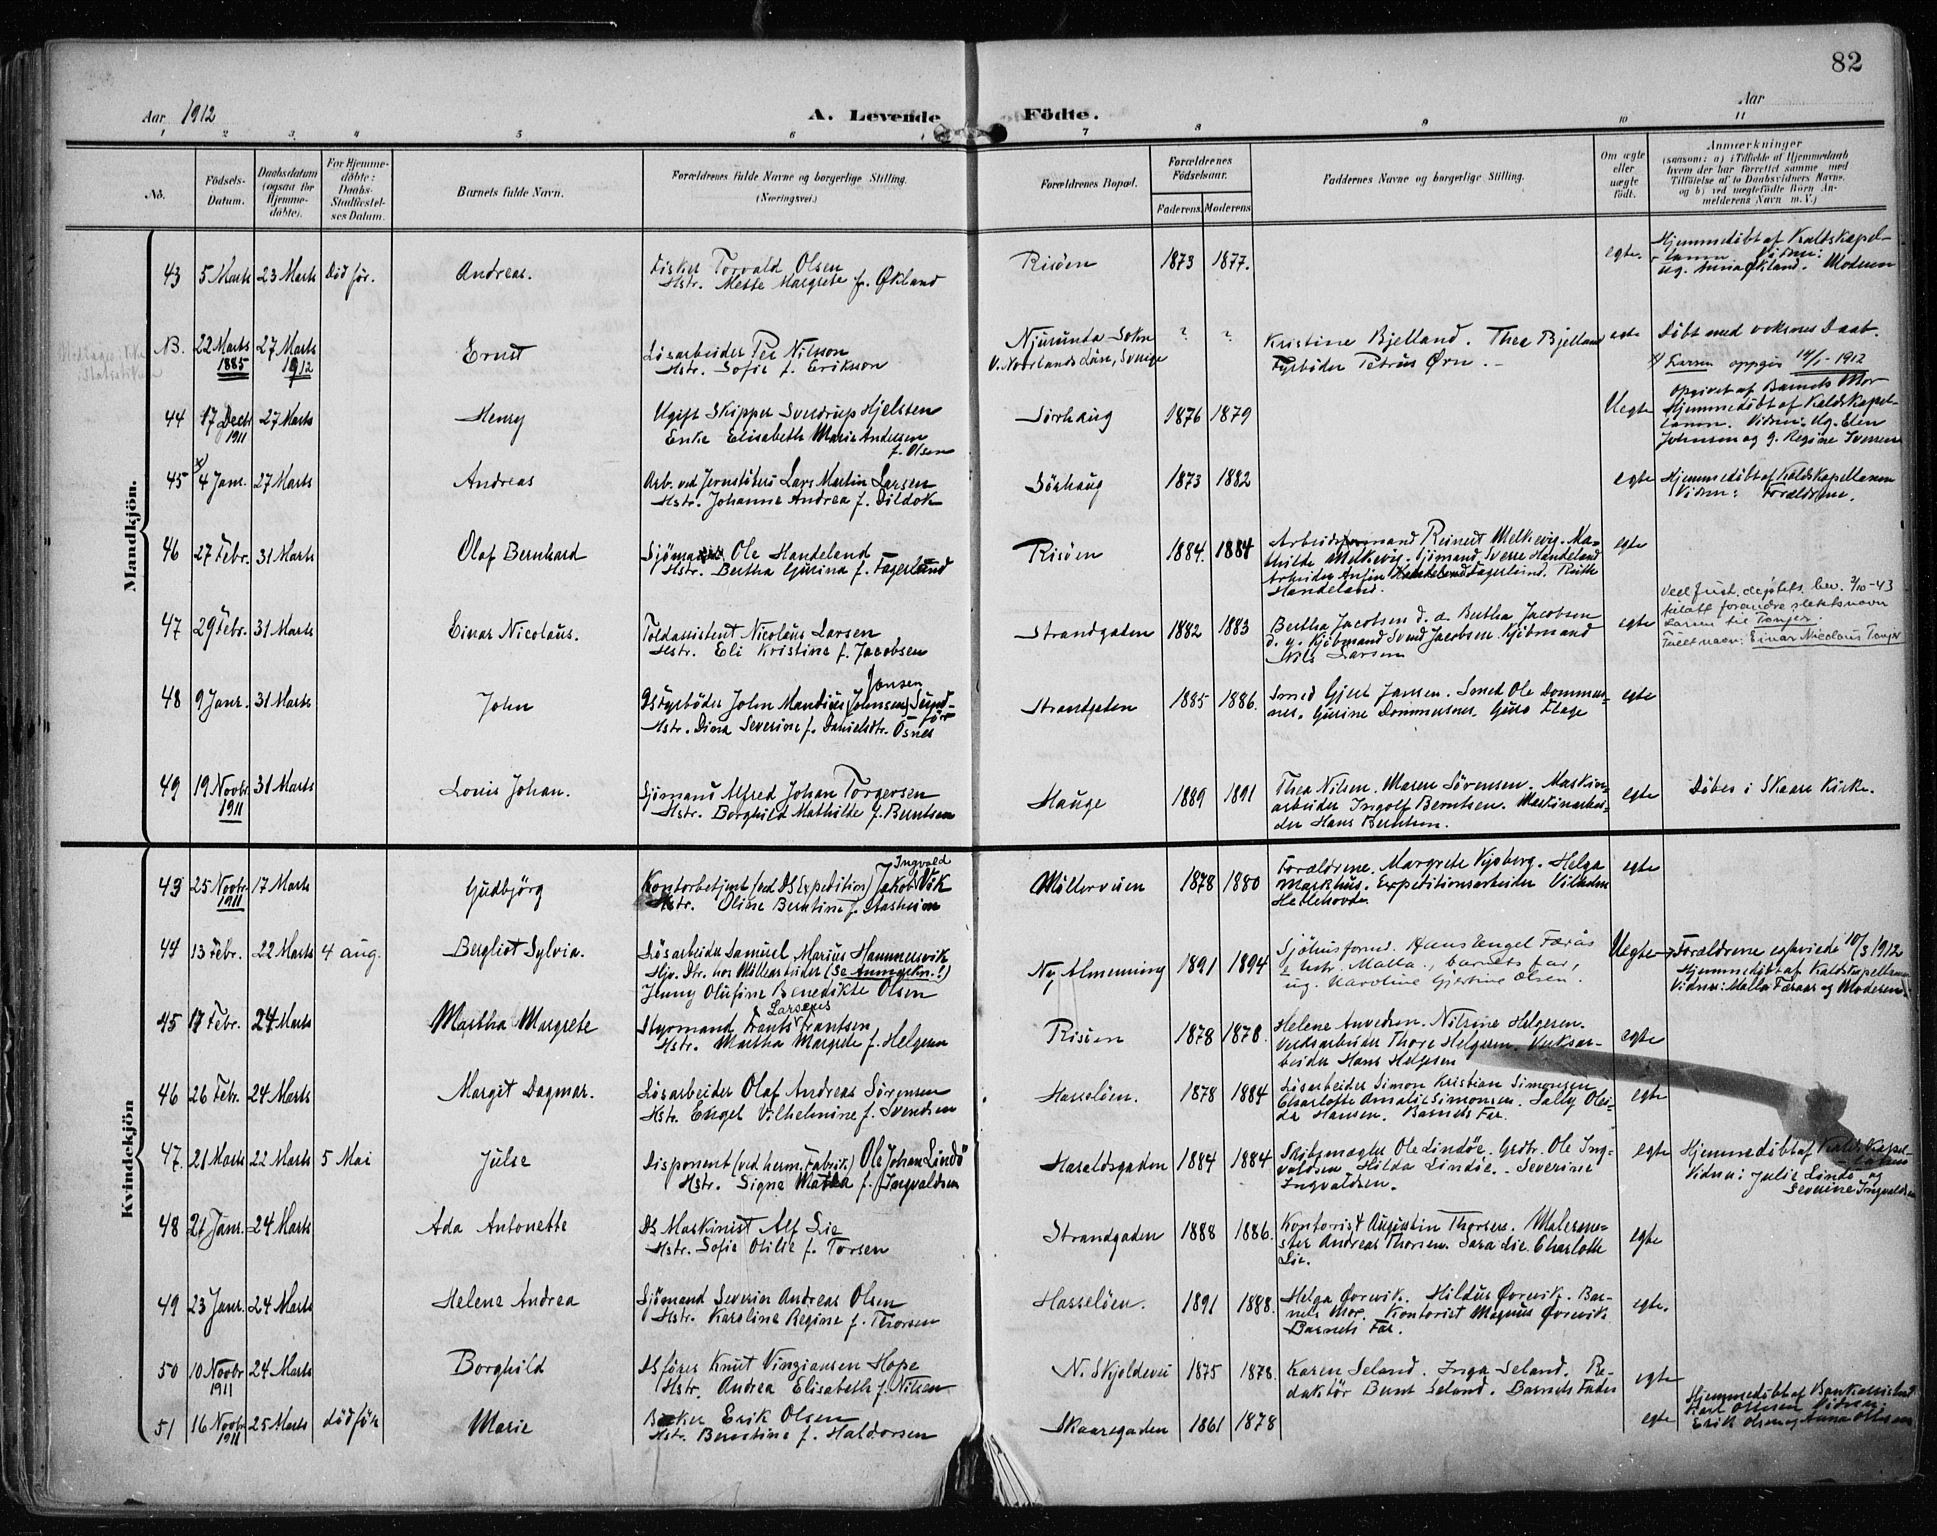 82
Aar 1912
A. Levende Födte.
Aar
1 2 3 4 5 6 7 8 9 10 11
No.
Födsels-Datum.
Daabsdatum (ogsaa for Hjemme-döbte).
For Hjemme-döbte: Daabs-Stadfæstel-ses Datum.
Barnets fulde Navn.
Forældrenes fulde Navne og borgerlige Stilling. (Næringsvei.)
Forældrenes Bopæl.
Forældrenes Födselsaar.
Faderens. Moderens
Faddernes Navne og borgerlige Stilling.
Om ægte eller uægte födt.
Anmærkninger
(saasom: a) i Tilfælde af Hjemmedaab
hvem der har forrettet samme med
Tilföielse af to Daabsvidners Navne.
og b) ved uægtefödte Börn An-
melderens Navn m. V.)
Mandkjön.
43 5 Marts 23 Marts Död før. Andreas.
Fisker Torvald Olsen
Hstr. Mette Margrete f. Økland
Risöen 1873 1877. egte.
Hjemmedöbt af Kaldskapel-
lanen. Vidner:
ug. Anna Økland. Moderen
N.B. 22 Marts 1885 27 Marts 1912 Ernst
Løsarbeider Per Nilsson
Hstr. Sofie f. Erikson
Njurunda Sokn
V. Norrlands Län, Sverige
? ?
Kristine Bjelland. Thea Bjelland
Fyrböder Petrus Ørn.
egte
Döbt med voksnes Daab.
x) Larsen opgir 14/1-1912
44 17 Decbr 1911 27 Marts Henry
Ugift Skipper Sverdrup Hjelsten
Enke Elisabeth Marie Andersen
f. Olsen
Sörhaug 1876 1879 Uegte
Opgivet af Barnets Mor
Hjemmedöbt af Kaldskapel-
lanen. Vidner: Ug. Elen
Johnsen og g. Regine Iversen
45 x) 4 Janr. 27 Marts Andreas
Arb. ved Jernstöberi Lars Martin Larsen
Hstr. Johanne Andrea f. Dildok
Sörhaug 1873 1882 egte
Hjemmedöbt af Kaldskapellanen
Vidner: Forældrene.
46 27 Febr. 31 Marts Olaf Bernhard
Sjömand Ole Handeland
Hstr. Bertha Gurina f. Fagerlund
Risöen 1884. 1884
Arbeidsformand Reinert Melkevig. Ma-
thilde Melkevig. Sjömand Sverre Handeland
Arbeider Anfin Fagerlund. Ruth
Handeland.
egte
47 29 Febr. 31 Marts Einar Nicolaus.
Toldassistent Nicolaus Larsen
Hstr. Eli Kristine f. Jacobsen
Strandgaten 1882 1883
Bertha Jacobsen d. æ. Bertha Jacobsen
d. y. Kjöbmand Svend Jacobsen. Kjöbmand
Nils Larsen
egte
Ved Just. dep.tets bev. 2/10-43
tillatt forandre slektsnavn
Larsen til Tonjer.
Fullt navn: Einar Nicolaus Tonjer
48 9 Janr. 31 Marts John
Jansen
DS fyrböder John Mandius Johnsen Sund-
för
Hstr. Dina Severine f. Danielsdtr. Osnes
Strandgaten 1885 1886.
Smed Gjert Jansen. Smed Ole Dommers-
nes. Gurine Dommersnes. Guro Flage
egte
49 19 Novbr 1911 31 Marts Louis Johan.
Sjömand Alfred Johan Torgersen
Hstr. Borghild Mathilde f. Berntsen
Hauge 1889 1891
Thea Nilsen. Maren Sörensen. Maskin-
arbeider Ingolf Berntsen. Maskinarbei-
der Hans Berntsen.
egte
Döbes i Skaare Kirke.
Kvindekjön
43 25 Novbr 1911 17 Marts Gudbjörg
Ingvald
Kontorbetjent (ved DS Expedition) Jakob Vik
Hstr. Oline Berntine f. Aasheim
Möllerveien 1878 1880
Forældrene. Margrete Vigsberg. Helga
Markhus. Expeditionsarbeider Vilhelm
Hetlehovde.
egte
44 13 Febr. 22 Marts 4 aug. Bergliot Sylvia.
Løsarbeider Samuel Marius Hammersvik
Hjv. Dtr. hos Möllearbeider (Se Anmærkn.!)
Jenny Olufine Benedikte Olsen
Ny Almenning 1891 1894
Sjöhusformd. Hans Engel Færås
& hstr. Malla., barnets far,
ug. Karoline Gjertine Olsen.
Uegte
Forældrene egteviede 10/3 1912
Hjemmedöbt af Kaldskapellanen
Vidner: Malla Færaas og Moderen.
45 17 Febr. 24 Marts Martha Margrete
Larsenes
Styrmand Frants Frantsen
Hstr. Martha Margrete f. Helgesen
Risöen 1878 1878.
Helene Anvedsen. Nilsine Helgesen.
Verksarbeider Thore Helgesen. Verksar-
beider Hans Helgesen
egte
46 26 Febr. 24 Marts Margit Dagmar.
Løsarbeider Olaf Andreas Sørensen
Hstr. Engel Vilhelmine f. Svendsen
Hasselöen. 1878 1884
Løsarbeider Simon Kristian Simonsen
Charlotte Amalie Simonsen. Sally Olei-
da Hansen. Barnets Far.
egte
47. 21 Marts 22 Marts 5 Mai Julie
Disponent (ved herm. Fabrik.) Ole Johan Lindö
Hstr. Signe Marka f. Ingvaldsen
Haraldsgaden 1884 1884
Skibsmægler Ole Lindöe. Grdbr. Ole Ing-
valdsen. Hilda Lindöe. Severine
Ingvaldsen.
egte
Hjemmedöbt af Kaldskapel-
lanen
Vidner: Julie Lindö og
Severine Ingvaldsen
48 21 Janr. 24 Marts Ada Antonette
DS Maskinist Alf Lie
Hstr. Sofie Otilie f. Torsen
Strandgaden 1888 1886.
Kontorist Augustin Thorsen. Malerme-
ster Andreas Thorsen. Sara Lie. Charlotte
Lie.
egte
49 23 Janr. 24 Marts Helene Andrea
Sjömand Severin Andreas Olsen
Hstr. Karoline Regine f. Thorsen
Hasselöen. 1891 1888.
Helga Ørevik. Hildus Ørevik. Bar-
nets Mor. Kontorist Magnus Ørevik
Barnets Far.
egte.
50 10 Novbr 1911 24 Marts Borghild
DS förer Knut Vingiansen Hope
Hstr. Andrea Elisabeth f. Nilsen
N. Skjoldevei 1875 1878.
Karen Seland. Inga Seland. Re-
daktör Bernt Seland. Barnets Fader
egte
51 16 Novbr 1911 25 Marts död før Marie
Baker Erik Olsen
Hstr. Berntine f. Haldorsen
Skaaregaden 1861 1878 egte
Hjemmedöbt af Bankassistent
Karl Ottesen Vidner:
Erik Olsen og Anna Olsen